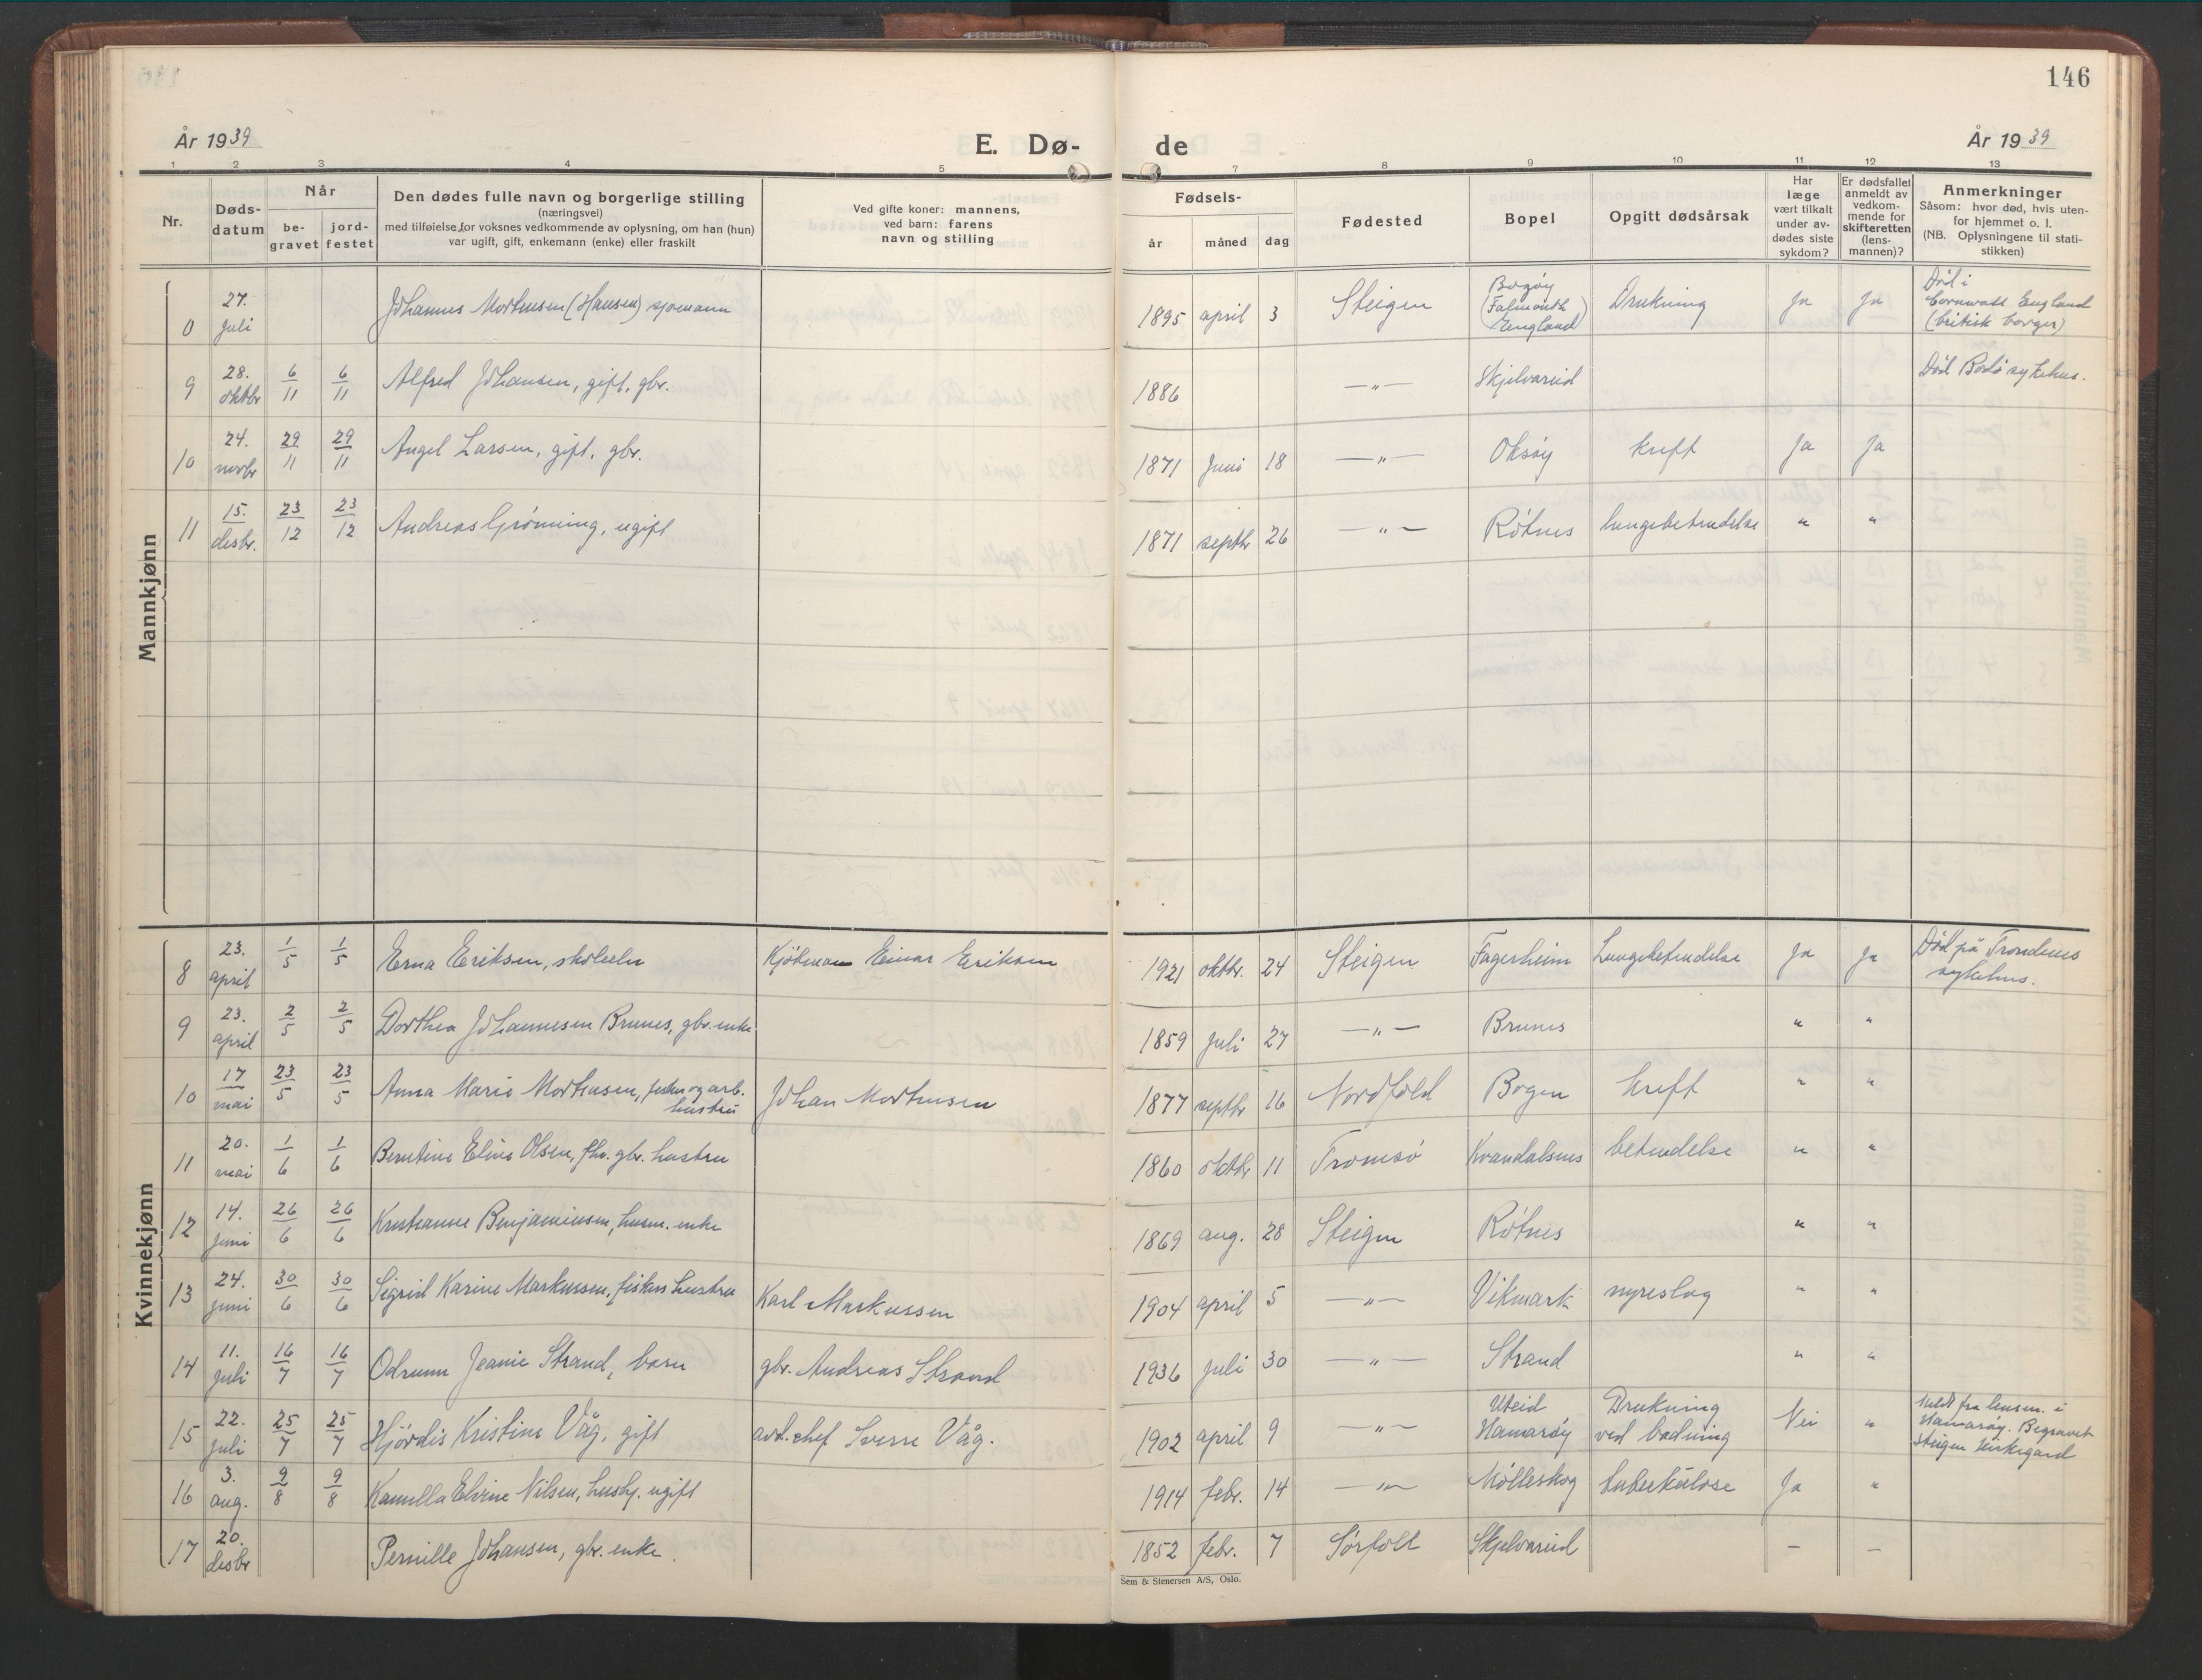 146
År 1939
E. Dø-
de
År 1939
1 2 3 4 5 7 8 9 10 11 12 13
Nr.
Døds-
datum
Når
be-
gravet
jord-
festet
Den dødes fulle navn og borgerlige stilling
(næringsvei)
med tilføielse for voksnes vedkommende av oplysning, om han (hun)
var ugift, gift, enkemann (enke) eller fraskilt
Ved gifte koner: mannens,
ved barn: farens
navn og stilling
Fødsels-
år måned dag
Fødested
Bopel
Opgitt dødsårsak
Har
læge
vært tilkalt
under av-
dødes siste
sykdom?
Er dødsfallet
anmeldt av
vedkom-
mende for
skifteretten
(lens-
mannen)?
Anmerkninger
Såsom: hvor død, hvis uten-
for hjemmet o. l.
(NB. Oplysningene til stati-
stikken)
Mannkjønn
0 27. juli Johannes Mortensen (Hansen) sjømann 1895 april 3 Steigen Bogøy (Falmouth England) Drukning Ja Ja Død i Cornwall England (britisk borger)
9 28. oktbr 6/11 6/11 Alfred Johansen, gift, gbr. 1886 —"— Skjelvareid Død Bodø sykehus.
10 24. novbr 29/11 29/11 Angel Larsen, gift, gbr. 1871 Juni 18 —"— Oksøy kreft Ja Ja
11 15. desbr. 23/12 23/12 Andreas Grønning, ugift 1871 septbr 26 —"— Røtnes lungebetendelse " "
Kvinnekjønn
8 23. april 1/5 1/5 Erna Eriksen, skoleelev Kjøbman Einar Eriksen 1921 oktbr. 24 Steigen Fagerheim Lungebetendelse Ja Ja Død på Trondenes sykehus.
9 23. april 2/5 2/5 Dorthea Johannesen Brunes, gbr. enke 1859 juli 27 —"— Brunes " "
10 17 mai 23/5 23/5 Anna Marie Mortensen, fisker og arb. hustru Johan Mortensen 1877 septbr 16 Nordfold Bogen kreft " "
11 20. mai 1/6 1/6 Berntine Eline Olsen, fhv. gbr. hustru 1860 oktbr 11 Tromsø Kvandalsnes betendelse " "
12 14. juni 26/6 26/6 Kristianne Benjaminsen, husm. enke 1869 aug. 28 Steigen Røtnes " "
13 24. juni 30/6 30/6 Sigrid Karine Markussen, fiskers hustru Karl Markussen 1904 april 5 —"— Vikmark nyreslag " "
14 11. juli 16/7 16/7 Odrunn Jeanie Strand, barn gbr. Andreas Strand 1936 juli 30 —"— Strand " "
15 22. juli 25/7 25/7 Hjørdis Kristine Våg, gift avd. chef Sverre Våg. 1902 april 9 —"— Uteid Hamarøy Drukning ved badning Nei " Meldt fra lensm. i Hamarøy. Begravet Steigen kirkegård
16 3. aug. 9/8 9/8 Kamilla Elvine Nilsen, hushj. ugift 1914 febr. 14 —"— Mølleskog tuberkulose Ja "
17 20. desbr Pernille Johansen, gbr. enke. 1852 febr. 7 Sørfold Skjelvareid — —
Sem & Stenersen A/S, Oslo.